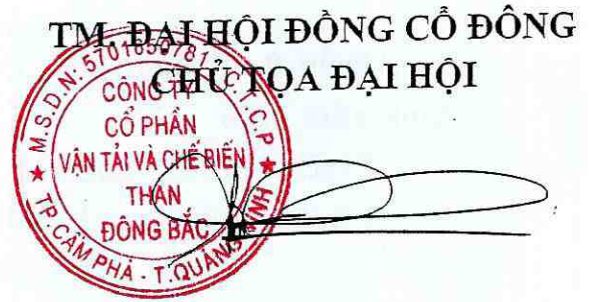 TM. ĐẠI HỘI ĐỒNG CỔ ĐÔNG
CHỦ TỌA ĐẠI HỘI
M.S.D.N: 5701650781 - C.T.C.P
CÔNG TY
CỔ PHẦN
VẬN TẢI VÀ CHẾ BIẾN
THAN
ĐÔNG BẮC
TP.CẨM PHẢ - T.QUẢNG NINH